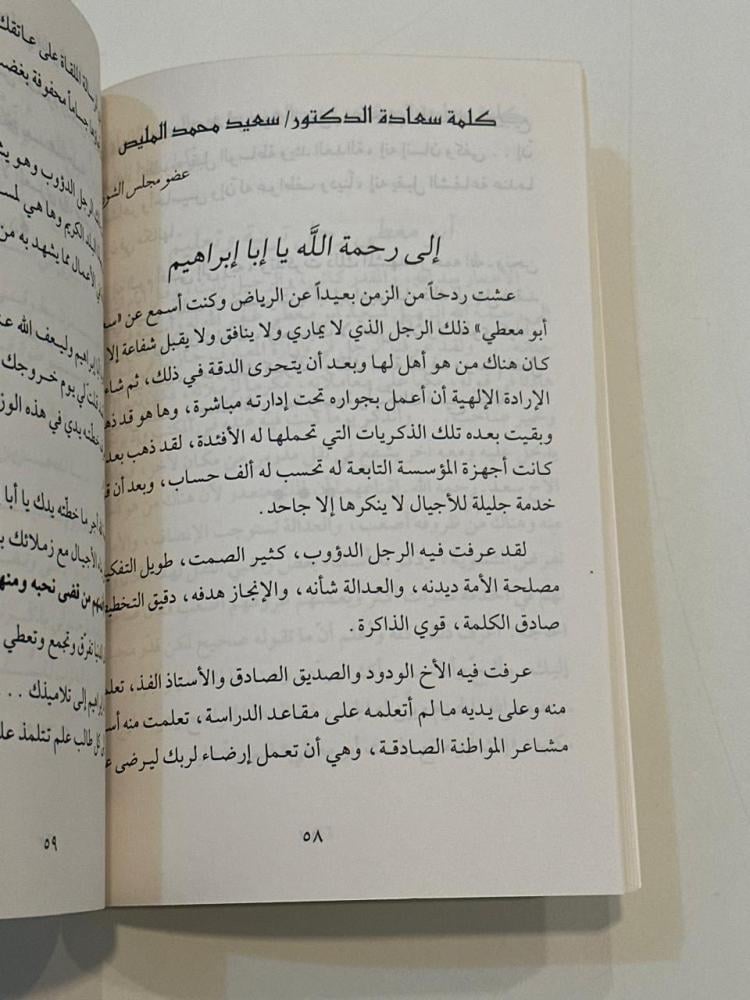 كلمة سعادة الدكتور/ سعيد محمد المليص
عضو مجلس الشورى
إلى رحمة اللَّه يا إبا إبراهيم
عشت ردحاً من الزمن بعيداً عن الرياض وكنت أسمع عن «سعيد
أبو معطي» ذلك الرجل الذي لا يماري ولا ينافق ولا يقبل شفاعة إلا
كان هناك من هو أهل لها وبعد أن يتحرى الدقة في ذلك، ثم شاء
الإرادة الإلهية أن أعمل بجواره تحت إدارته مباشرة، وها هو قد
وبقيت بعده تلك الذكريات التي تحملها له الأفئدة. لقد ذهب بعد
كانت أجهزة المؤسسة التابعة له تحسب له ألف حساب، وبعد أن
خدمة جليلة للأجيال لا ينكرها إلا جاحد.
لقد عرفت فيه الرجل الدؤوب، كثير الصمت، طويل التفكير
مصلحة الأمة ديدنه، والعدالة شأنه، والإنجاز هدفه، دقيق التخطيط
صادق الكلمة، قوي الذاكرة.
عرفت فيه الأخ الودود والصديق الصادق والأستاذ الفذ، تعلمت
منه وعلى يديه ما لم أتعلمه على مقاعد الدراسة، تعلمت منه
مشاعر المواطنة الصادقة، وهي أن تعمل إرضاء لربك ليرضى
٥٨
الملقاة على عاتقك
جساماً محفوفة بغضب
الرجل الدؤوب وهو
الكريم وها هي
الأعمال مما يشهد به من
إبراهيم وليعف الله
لي يوم خروجك
خطته يدي في هذه
ما خطّته يدك يا أبا
الأجيال مع زملائك
من قضى نحبه ومنهم
تفرّق وتجمع وتعطي
إبراهيم إلى تلاميذك . . .
كل طالب علم تتلمذ
٥٩